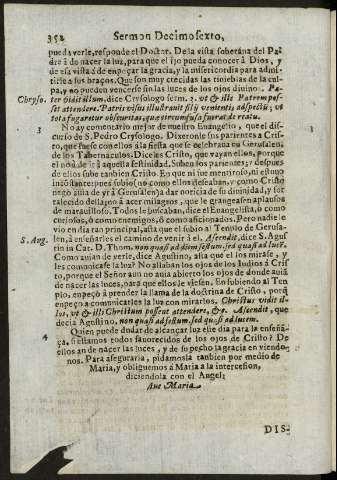 352 Sermon Decimosexto,
pueda verle, responde el Doctor. De la vista soberana del Pa-
dre á de nacer la luz, para que el ijo pueda conocer à Dios, y
de esa vista à de enpeçar la gracia, y la misericordia para admi-
tirle a sus braços. Que son muy crecidas las tinieblas de la cul-
pa, y no pueden vencerse sin las luces de los ojos divinos. Pa-
Chryso. ter vidit illum, dice Crysologo serm. 2. ut & ille Patrem pos-
sit attendere. Patris visus illustravit filij venientis aspectū; ut
tota fugaretur obscuritas, quæ circumfusa fuerat de reatu.
3 No ay comentario mejor de nuestro Euangelio, que el dis-
curso de S. Pedro Crysologo. Dixeronle sus parientes a Cris-
to, que fuese con ellos à la fiesta que se celebraba en Gerusalen
de los Tabernaculos. Diceles Cristo, que vayan ellos, Porque
el no à de ir à aquella festividad. Suben los parientes; i despues
de ellos sube tanbien Cristo. En que ni fue mentiroso, ni estuvo
incōstante: pues subio (no como ellos deseaban, y como Cristo
nego avia de yr à Gerusalen) a dar noticia de su divinidad, y for
talecido della, no à acer milagros, que le grangeasen aplausos
de maravilloso. Todos le buscaban, dice el Evangelista, o como
curiosos, ò como enemigos, ò como aficionados. Pero nadie le
vio en dia tan principal, asta que el subio al Tenplo de Gerusa-
len, à enseñarles el camino de venir à el. Ascendit, dice S. Agus
S. Aug. tin in Cat. D. Thom. non quasi ad diem festum, sed quasi ad lucē.
Como avian de verle, dice Agustino, asta que el los mirase, y
les comunicase la luz? No aliaban los ojos de los Iudios à Cris-
to, porque el Señor aun no avia abierto los ojos de donde avia
de nacer las luces, para que ellos le viesen. En subiendo al Ten
plo, enpeçò à prender la llama de la doctrina de Cristo, porq̄
enpeço a comunicarles la luz con mirarlos. Christus vidit il-
los, ut & illi Christum possent attendere, &c. Ascendit, que
decia Agustino, non quasi ad festum, sed quasi ad lucem.
4 Quien puede dudar de alcançar luz este dia para la enseñā-
ça, si estamos todos favorecidos de los ojos de Cristo? De
ellos an de nacer las luces, y de su pecho la gracia en viendo-
nos. Para asegurarla, pidamosla tanbien por medio de
Maria, y obliguemos à Maria à la intercesion,
diciendola con el Angel;
Ave Maria.
DIS-